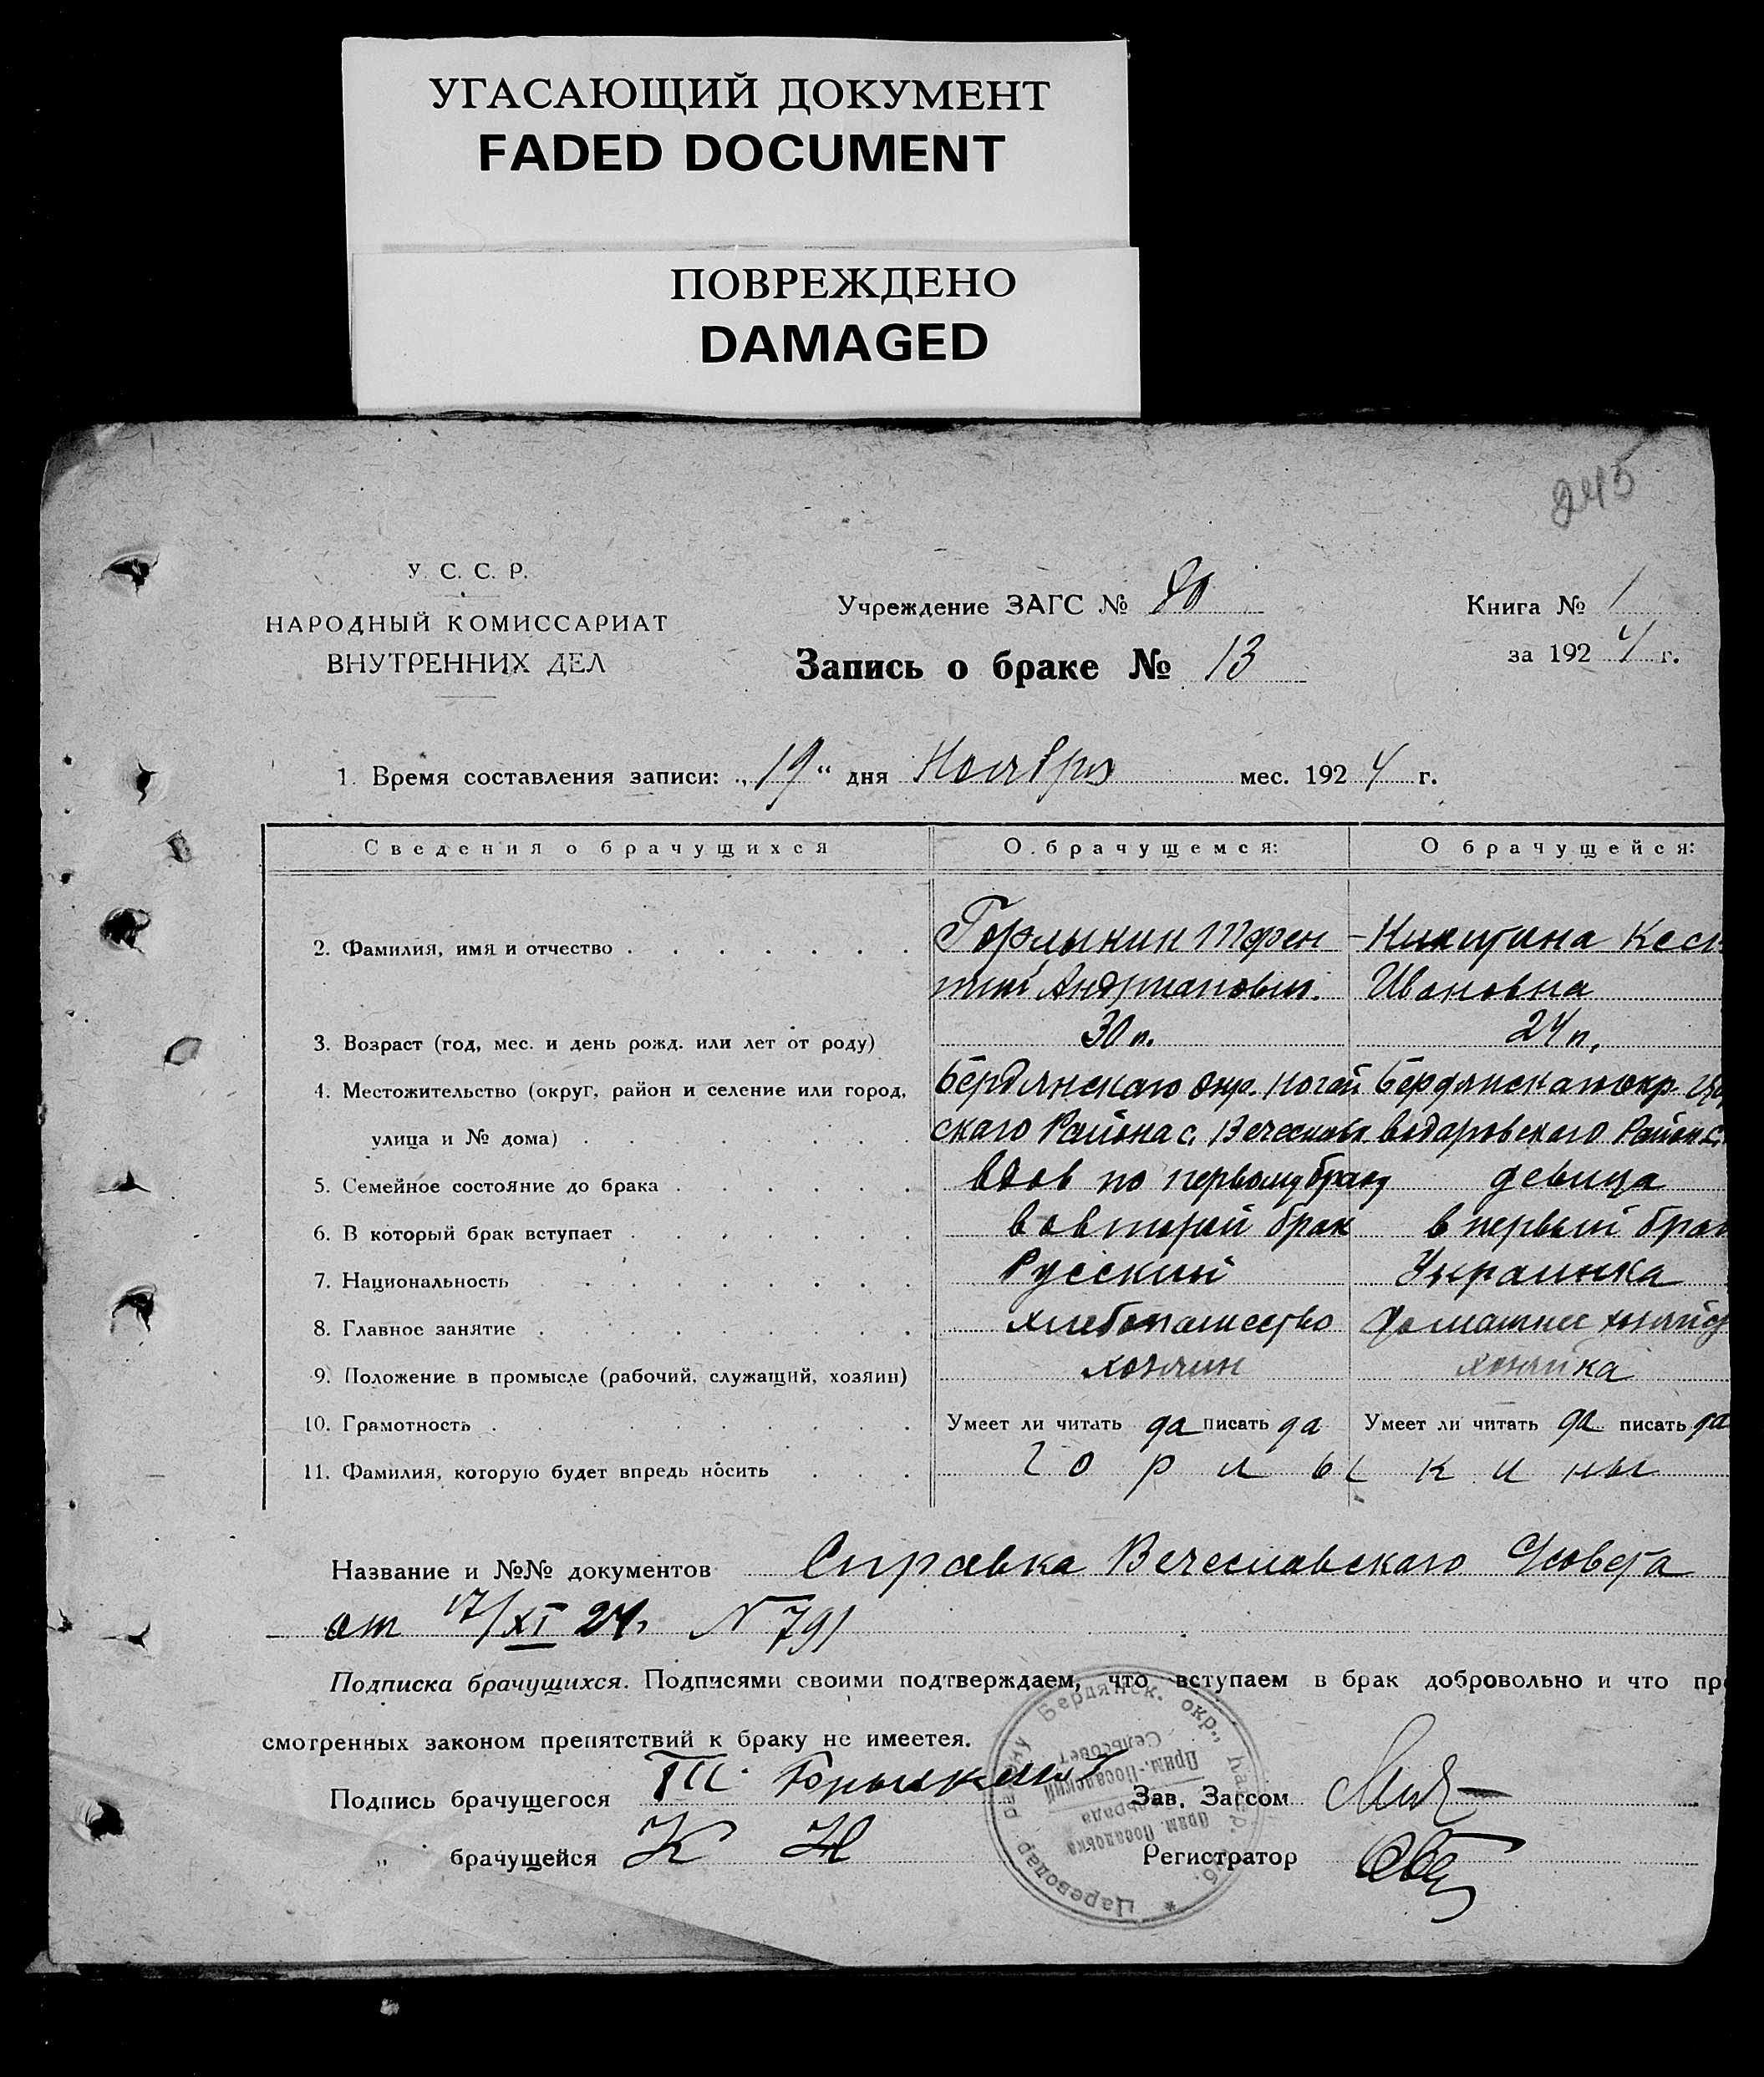 УГАСАЮЩИЙ ДОКУМЕНТ
FADED DOCUMENT
ПОВРЕЖДЕНО
DAMAGED
245
У. С. С. Р.
НАРОДНЫЙ КОМИССАРИАТ
ВНУТРЕННИХ ДЕЛ
Учреждение ЗАГС № 80
Запись о браке № 13
Книга № 1
за 1924 г.
1. Время составления записи: „19“ дня Ноября мес. 1924 г.
Сведения о брачущихся О брачущемся: О брачущейся:
2. Фамилия, имя и отчество Горлыкин Терен Никитина
тий Андрианович. Ивановна
3. Возраст (год, мес. и день рожд. или лет от роду) 30 л. 24 л.
4. Местожительство (округ, район и селение или город, Бердянского Окр. Ногай Бердянского окр. Ца
улица и № дома) ского Района с. Вячеславка водаровского Район с.
5. Семейное состояние до брака вдов по первому браку девица
6. В который брак вступает во второй брак в первый брак
7. Национальность Русский Украинка
8. Главное занятие хлебопашество домашнее хозяйст
9. Положение в промысле (рабочий, служащий, хозяин) хозяин хозяйка
10. Грамотность Умеет ли читать да писать да Умеет ли читать да писать да
11. Фамилия, которую будет впредь носить Горлыкины
Название и №№ документов Справка Вечеславского С/совета
от 17/XI 24 г. № 791
Подписка брачущихся. Подписями своими подтверждаем, что вступаем в брак добровольно и что пр
смотренных законом препятствий к браку не имеется.
Подпись брачущегося Т. Горлыкин Зав. Загсом
„ брачущейся К Н Регистратор
Цареводар. району Бердянск. окр.,
Прим. Посадська
Прим.-Посадский
Сельсовет